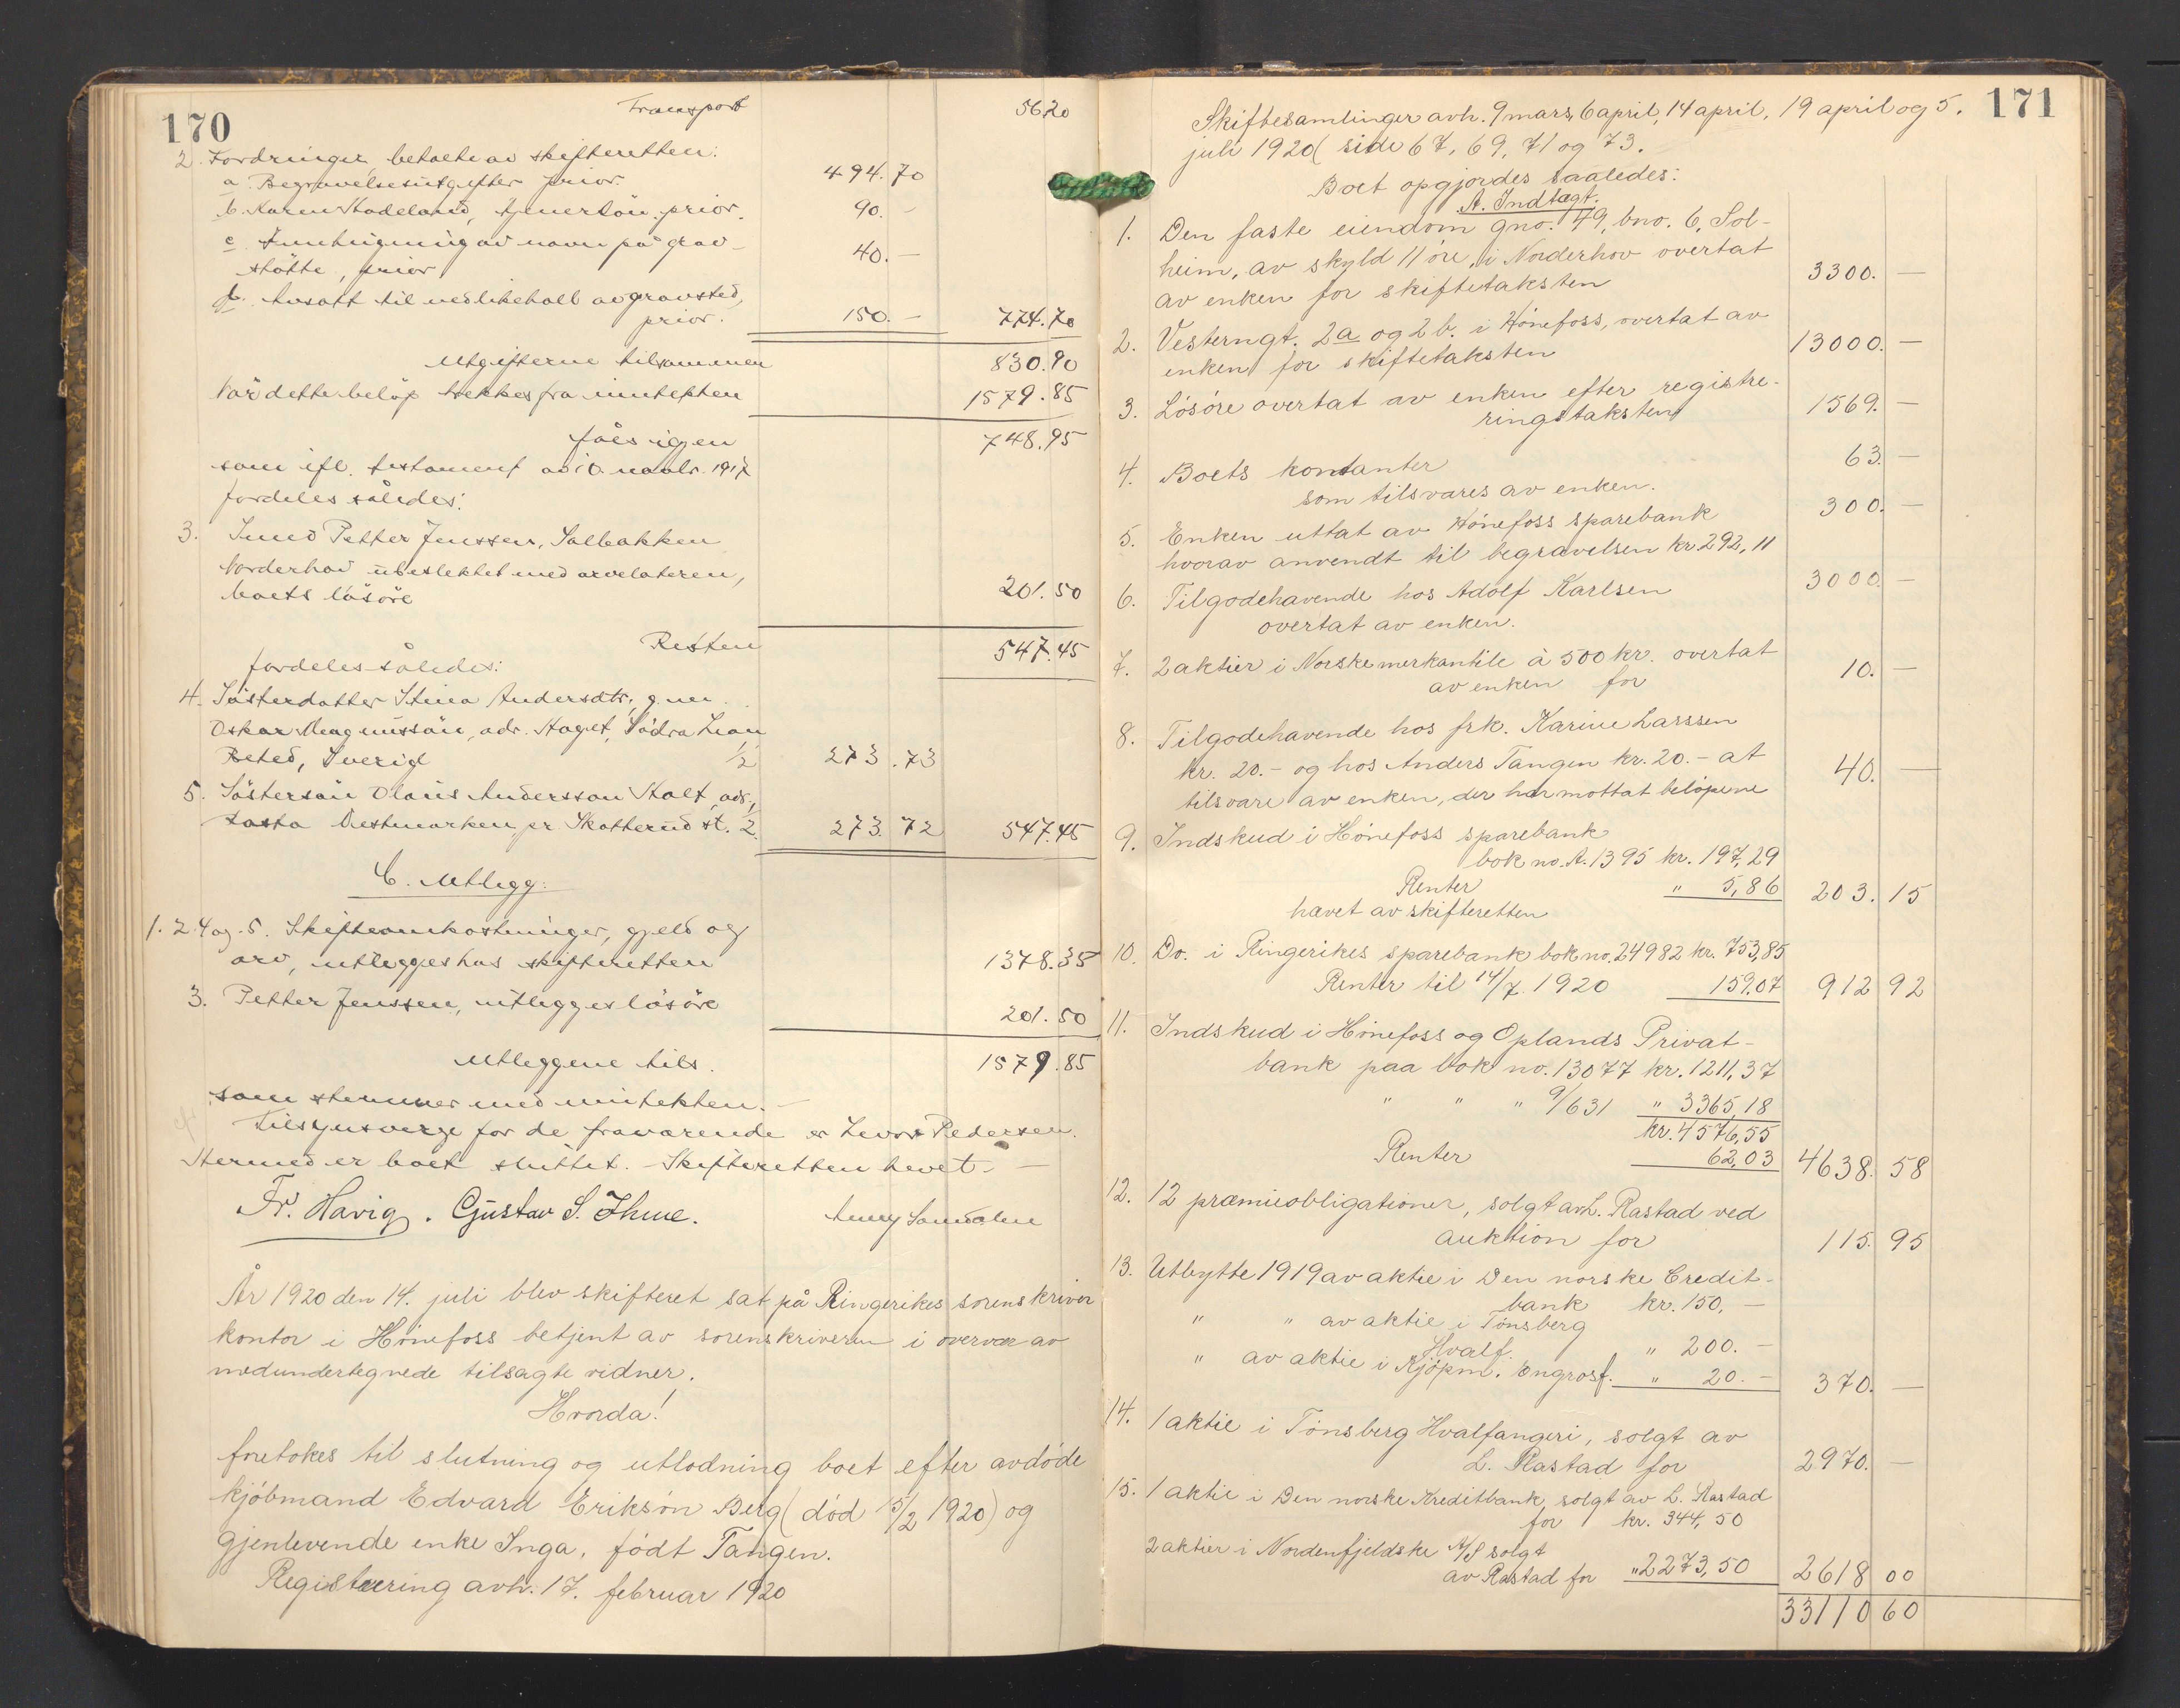 170
Transport 56.20
2. Fordringer, betalte av skifteretten:
a. Begravelsesutgifter prior. 494.70
b. Karen Hadeland, tjenerlön, prior. 90.-
c. Innhugning av navn på grav-
støtte, prior 40.-
d. Avsatt til vedlikehold av gravsted,
prior. 150.- 774.70
Utgifterne tilsammen 830.90
Når dette beløp trekkes fra inntekten 1579.85
fåes igjen 748.95
som ifl. testament av 10. novbr. 1917
fordeles således:
3. Petter Jenssen, Solbakken
Norderhov ubeslektet med arvelateren,
boets løsøre 201.50
Resten 547.45
fordeles således:
4. Søsterdatter Stina Andersdtr, g. m.
Oskar Magnussön, adr. Haget, Södra
Beted, Sverige 1/2 273.73
5. Søstersøn Olaus Andersson Kalt, adr.,
Vestmarken pr Skotterud st. 1/2 273.72 547.45
C. Utlegg:
1. 2. 4 og 5. Skifteomkostninger, gjeld og
arv, utlegges hos skifteretten 1378.35
3. Petter Jenssen, utlegges løsøre 201.50
Utleggene tils. 1579.85
som stemmer med inntekten. -
Tilsynsverge for de fraværende er Pedersen.
Hermed er boet sluttet. Skifteretten hevet. -
Fr. Havig. Gustav S. Ihme.
År 1920 den 14. juli blev skifteret sat på Ringerikes sorenskriver
kontor i Hönefoss betjent av sorenskriveren i overvær av
medundertegnede tilsagte vidner.
Hvorda!
foretokes til slutning og utlodning boet efter avdöde
kjöbmand Edvard Eriksön Berg (död 15/2 1920) og
gjenlevende enke Inga, födt Tangen.
Registrering avh. 17. februar 1920
171
Skiftesamlinger avh. 9 mars, 6 april, 14 april, 19 april og 5.
juli 1920 (side 67, 69, 71 og 73.
Boet opgjordes saaledes:
A. Indtægt.
1. Den faste eiendom gno. 49, bno. 6, Sol-
heim, av skyld 11 öre, i Norderhov overtat
av enken for skiftetaksten 3300. -
2. Vesterngt. 2a og 2b. i Hönefoss, overtat av
enken for skiftetaksten 13000. -
3. Lösöre overtat av enken efter registre-
ringstaksten 1569. -
4. Boets kontanter 63. -
som tilsvares av enken.
5. Enken uttat av Hönefoss sparebank 300. -
hvorav anvendt til begravelsen kr. 292,11
6. Tilgodehavende hos Adolf Karlsen 3000. -
overtat av enken.
7. 2 aktier i Norske merkantile à 500 kr. overtat
av enken for 10. -
8. Tilgodehavende hos frk. Karine Larssen
kr. 20.- og hos Anders Tangen kr. 20.- at
tilsvare av enken, der har mottat belöpene 40. -
9. Indskud i Hönefoss sparebank
bok no. A. 1395 kr. 197,29
Renter " 5,86 203. 15
hævet av skifteretten
10. Do. i Ringerikes sparebank bok no. 24982 kr. 753,85
Renter til 14/7 1920 159,07 912 92
11. Indskud i Hönefoss og Oplands Privat-
bank paa bok no. 13077 kr. 1211,37
" " " 9/631 " 3365,18
kr. 4576,55
Renter 62,03 4638. 58
12. 12 præmieobligationer, solgt av L. Rastad ved
auktion for 115. 95
13. Utbytte 1919 av aktie i Den norske Credit-
bank kr. 150, -
" " av aktie i Tönsberg
Hvalf. " 200. -
" av aktie i Kjöpm. Engrosf. " 20. - 370. -
14. 1 aktie i Tönsberg Hvalfangeri, solgt av
L. Rastad for 2970. -
15. 1 aktie i Den norske Kreditbank, solgt av L. Rastad
for kr. 344,50
2 aktier i Nordenfjeldske A/S solgt
av Rastad for " 2273,50 2618 00
33110 60